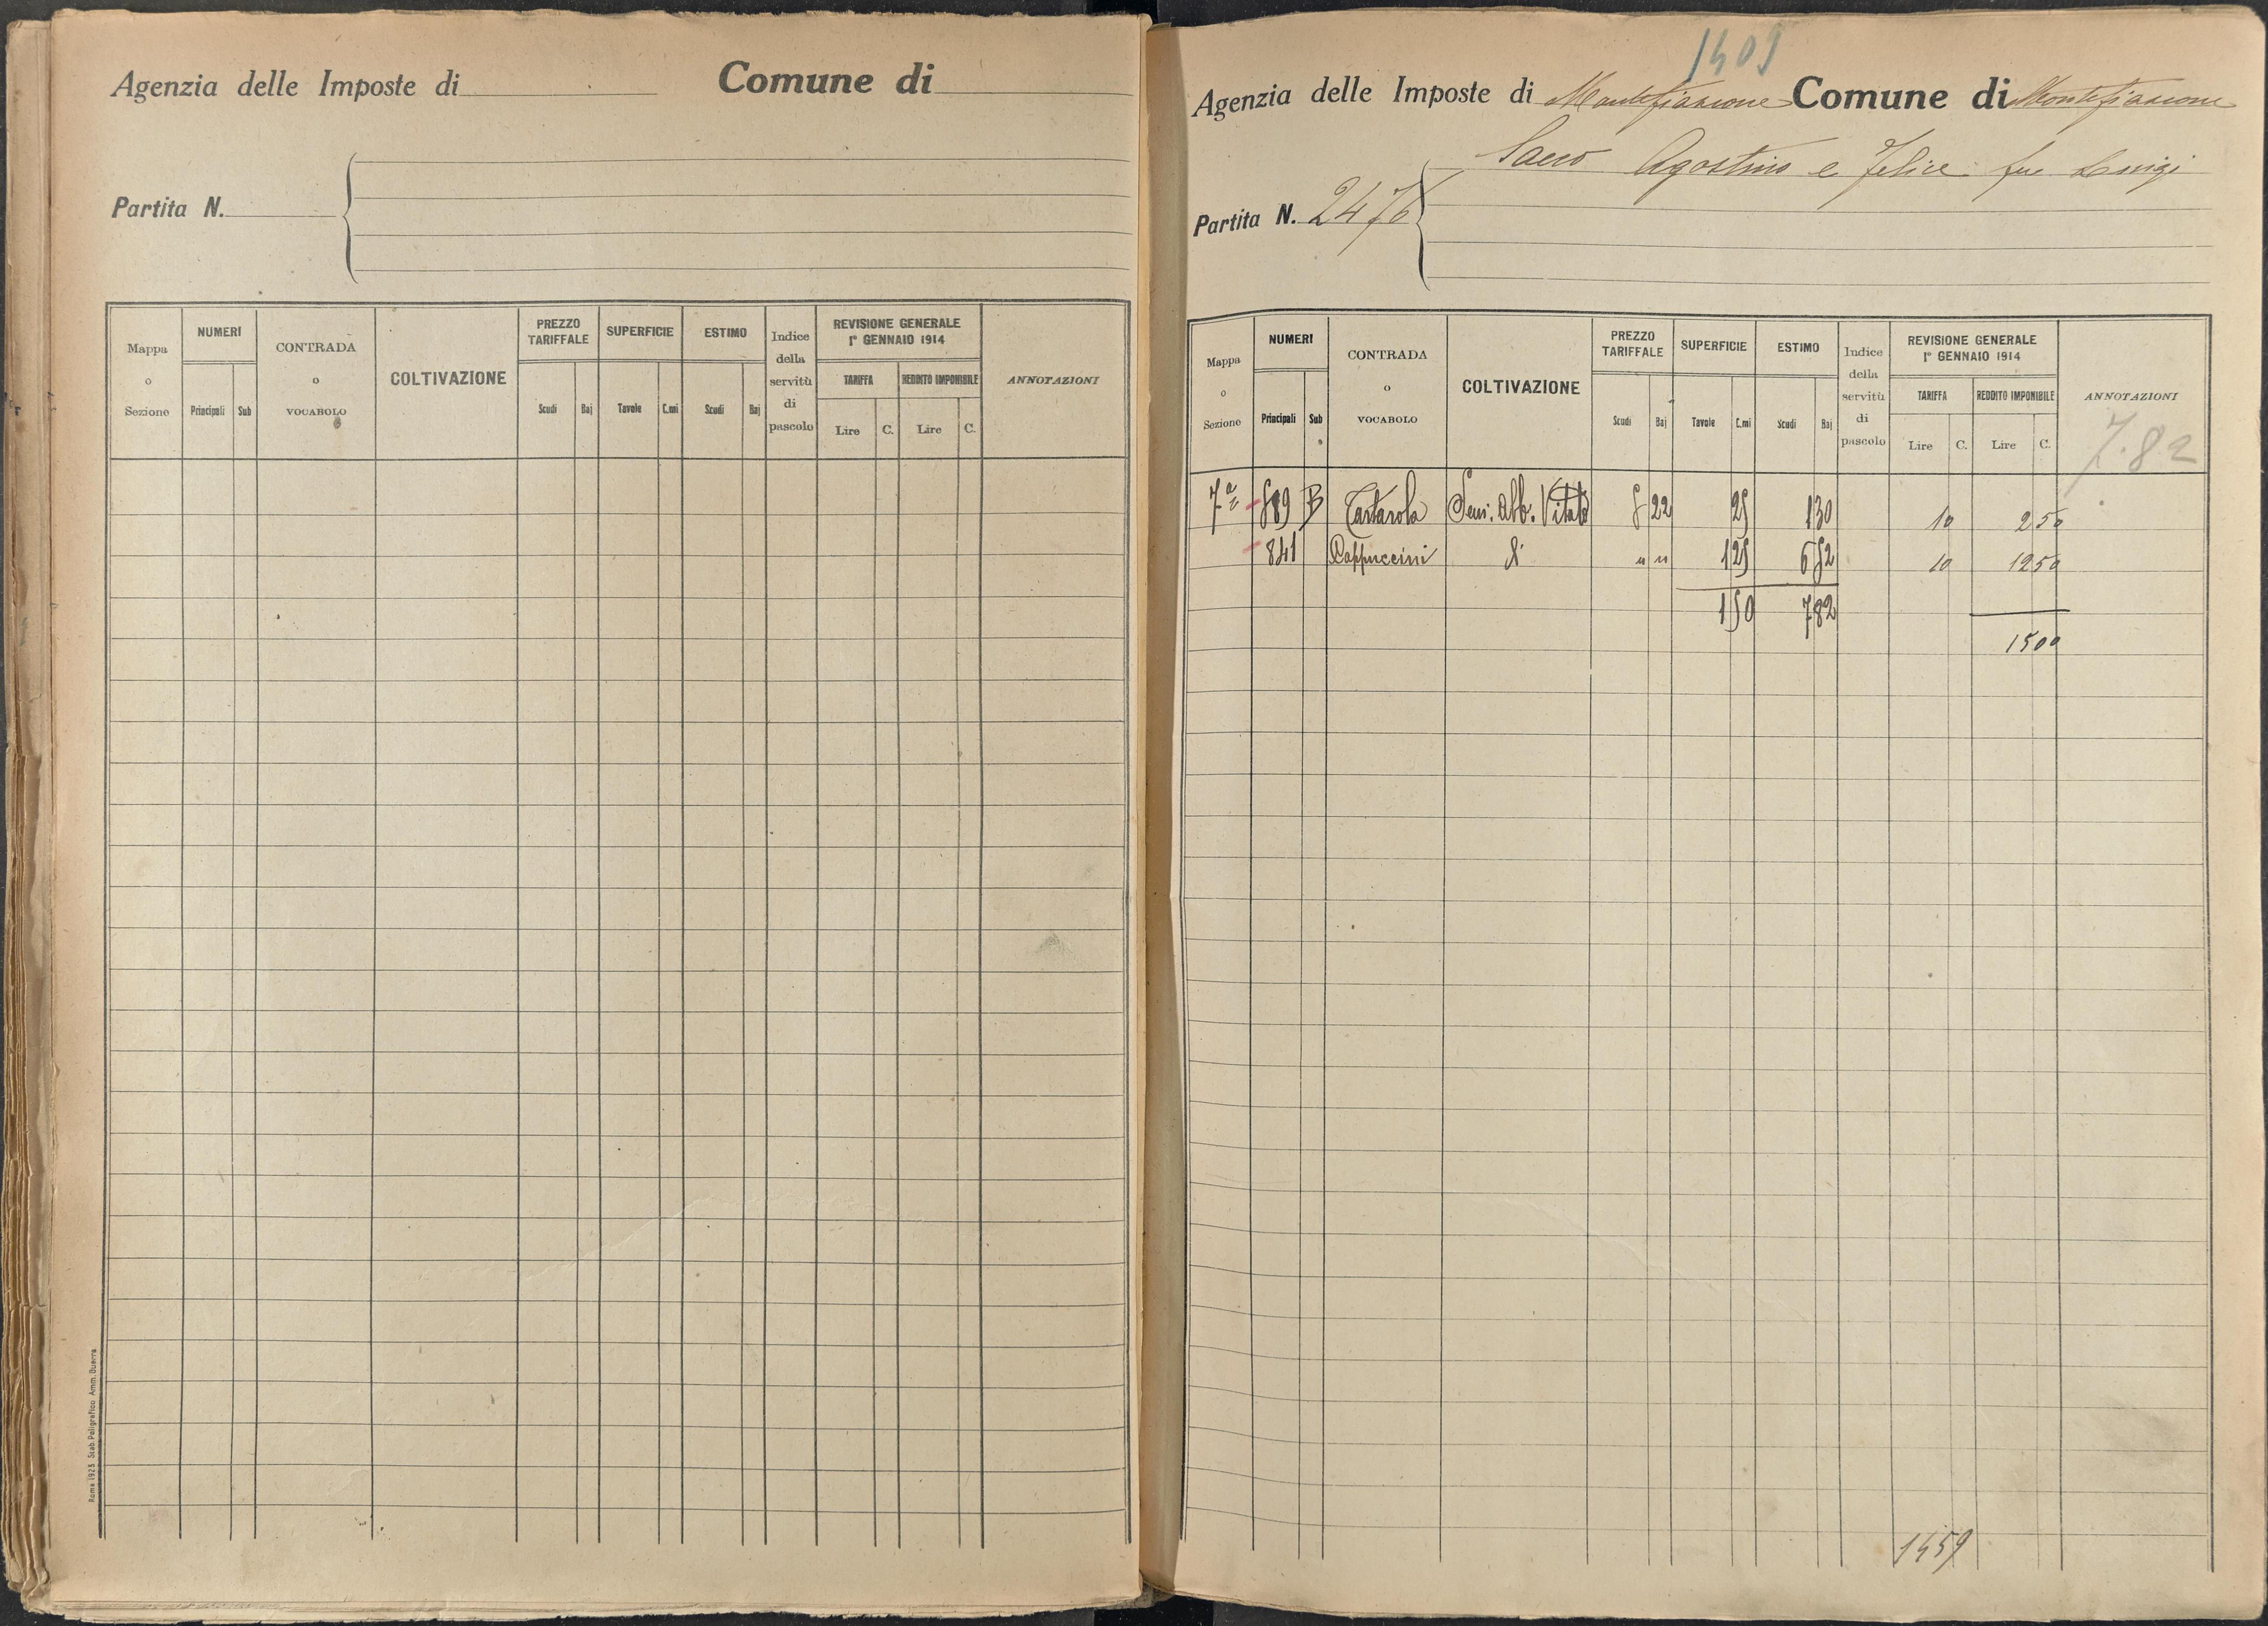 Agenzia delle Imposte di Comune di
Partita N.
Mappa o Sezione NUMERI CONTRADA o VOCABOLO COLTIVAZIONE PREZZO TARIFFALE SUPERFICIE ESTIMO Indice della servitù di pascolo REVISIONE GENERALE 1° GENNAIO 1914 ANNOTAZIONI
TARIFFA REDDITO IMPONIBILE
Principali Sub Scudi Baj Tavole C.mi Scudi Baj Lire C. Lire C.
Roma 1923 Stab. Poligrafico Amm. Guerra
1409
Agenzia delle Imposte di Montefiascone Comune di Montefiascone
Agostino e Felice fu Luigi
Partita N. 2476
Mappa o Sezione NUMERI CONTRADA o VOCABOLO COLTIVAZIONE PREZZO TARIFFALE SUPERFICIE ESTIMO Indice della servitù di pascolo REVISIONE GENERALE 1° GENNAIO 1914 ANNOTAZIONI
TARIFFA REDDITO IMPONIBILE
Principali Sub Scudi Baj Tavole C.mi Scudi Baj Lire C. Lire C.
7.82
7ª B Tartarola Sem. Alb. Vitato 5 22 25 1 30 10 2 50
841 Cappuccini d° " " 1 25 6 52 10 12 50
1 50 7 82
15 00
1459